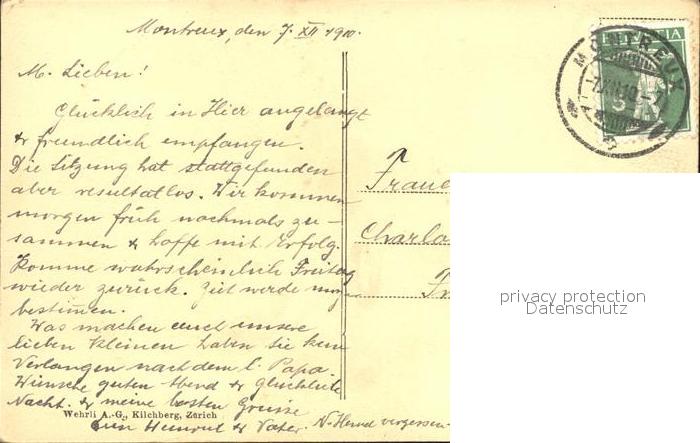 Montreux, den 7. XII 1910.
M. Lieben!
Glücklich in Hier angelangt
& freundlich empfangen.
Die Sitzung hat stattgefunden
aber resultatlos. Wir kommen
morgen früh nochmals zu-
sammen & hoffe mit Erfolg.
Komme wahrscheinlich Freitag
wieder zurück. Zeit werde
bestimmen.
Was machen auch unsere
lieben Kleinen haben sie kein
Verlangen nach dem l. Papa.
Wünsche guten Abend & glückliche
Nacht. & meine besten Grüsse
Euer & Vater. N-Hemd vergessen.
Wehrli A.-G., Kilchberg, Zürich
HELVETIA
5
MONTREUX
7.XII.10
privacy protection
Datenschutz